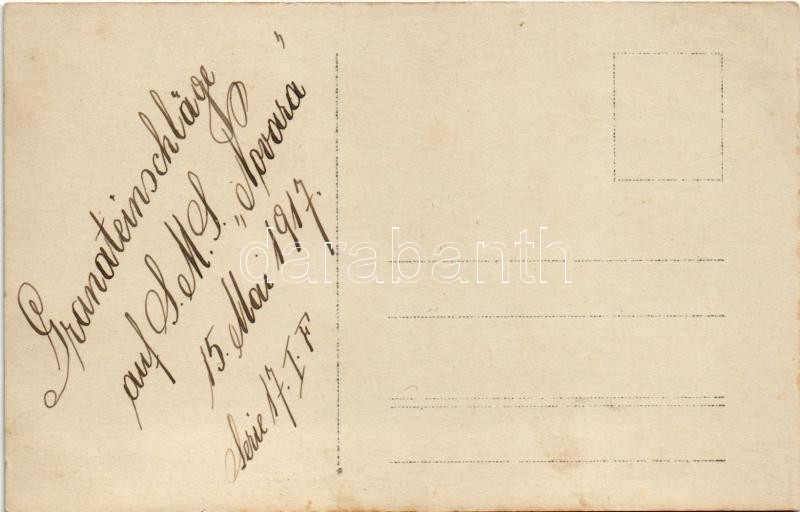 Granateinschläge
auf S.M.S. „Novara"
15. Mai 1917.
Serie 17. I. F
darabanth